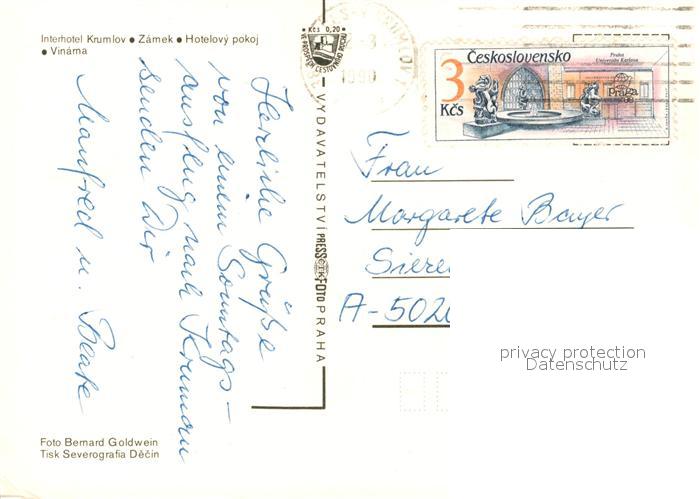 Interhotel Krumlov ● Zámek ● Hotelový pokoj
● Vinárna
Herzliche Grüße
von einem Sonntags-
ausflug nach Krumau
senden Dir
Manfred u. Beate
Foto Bernard Goldwein
Tisk Severografia Děčín
Kčs 0,20
VE PROSPĚCH CESTOVNÍHO RUCHU
VYDAVATELSTVÍ PRESSFOTO PRAHA
1990
Československo
3
Kčs
Praha
Universita Karlova
praga
88
Frau
Margarete Bayer
Siere
A-502
privacy protection
Datenschutz